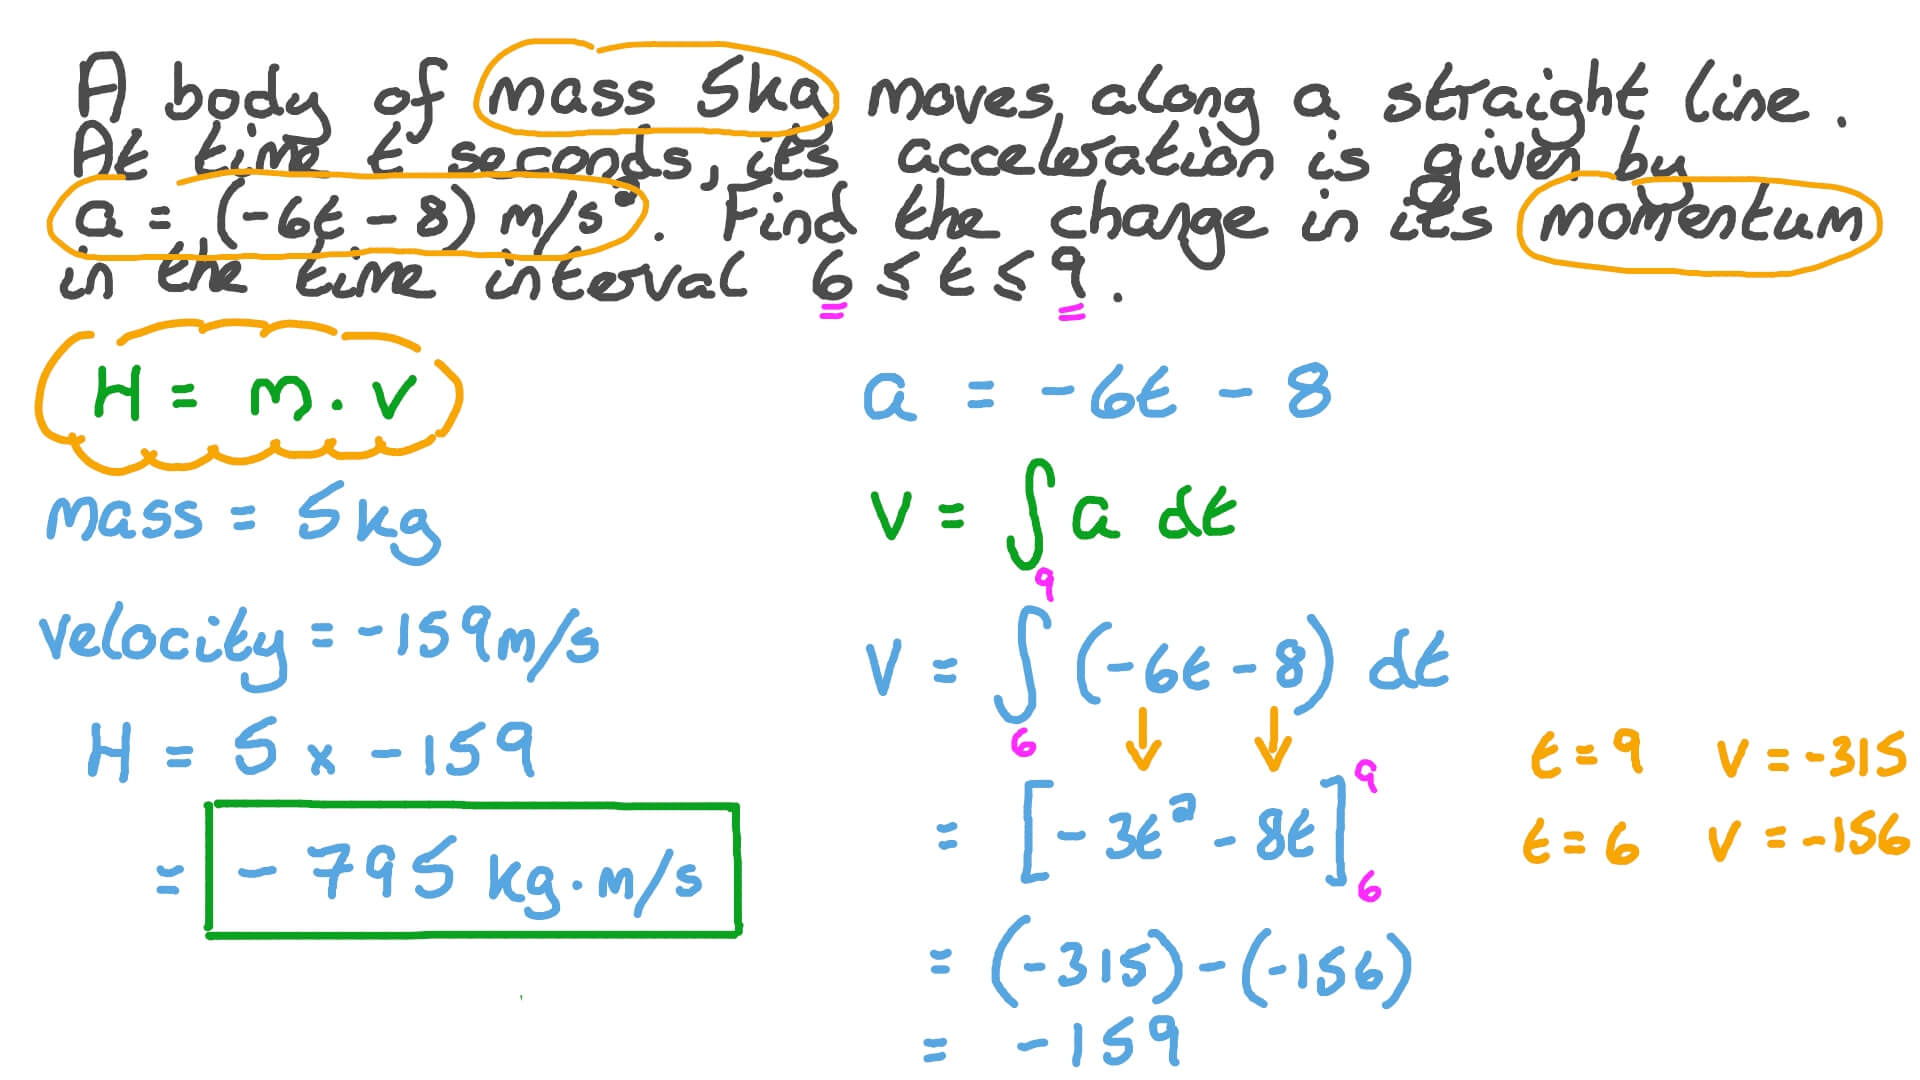 A body of mass 5kg moves along a straight line.
At time t seconds, its acceleration is given by
a = (-6t - 8) m/s². Find the change in its momentum
in the time interval 6 ≤ t ≤ 9.
H = m . v
mass = 5kg
velocity = -159m/s
H = 5 x -159
= -795 kg.m/s
a = -6t - 8
v = ∫ a dt
9
v = ∫ (-6t - 8) dt
6
= [-3t² - 8t]
9
6
= (-315) - (-156)
= -159
t = 9 v = -315
t = 6 v = -156